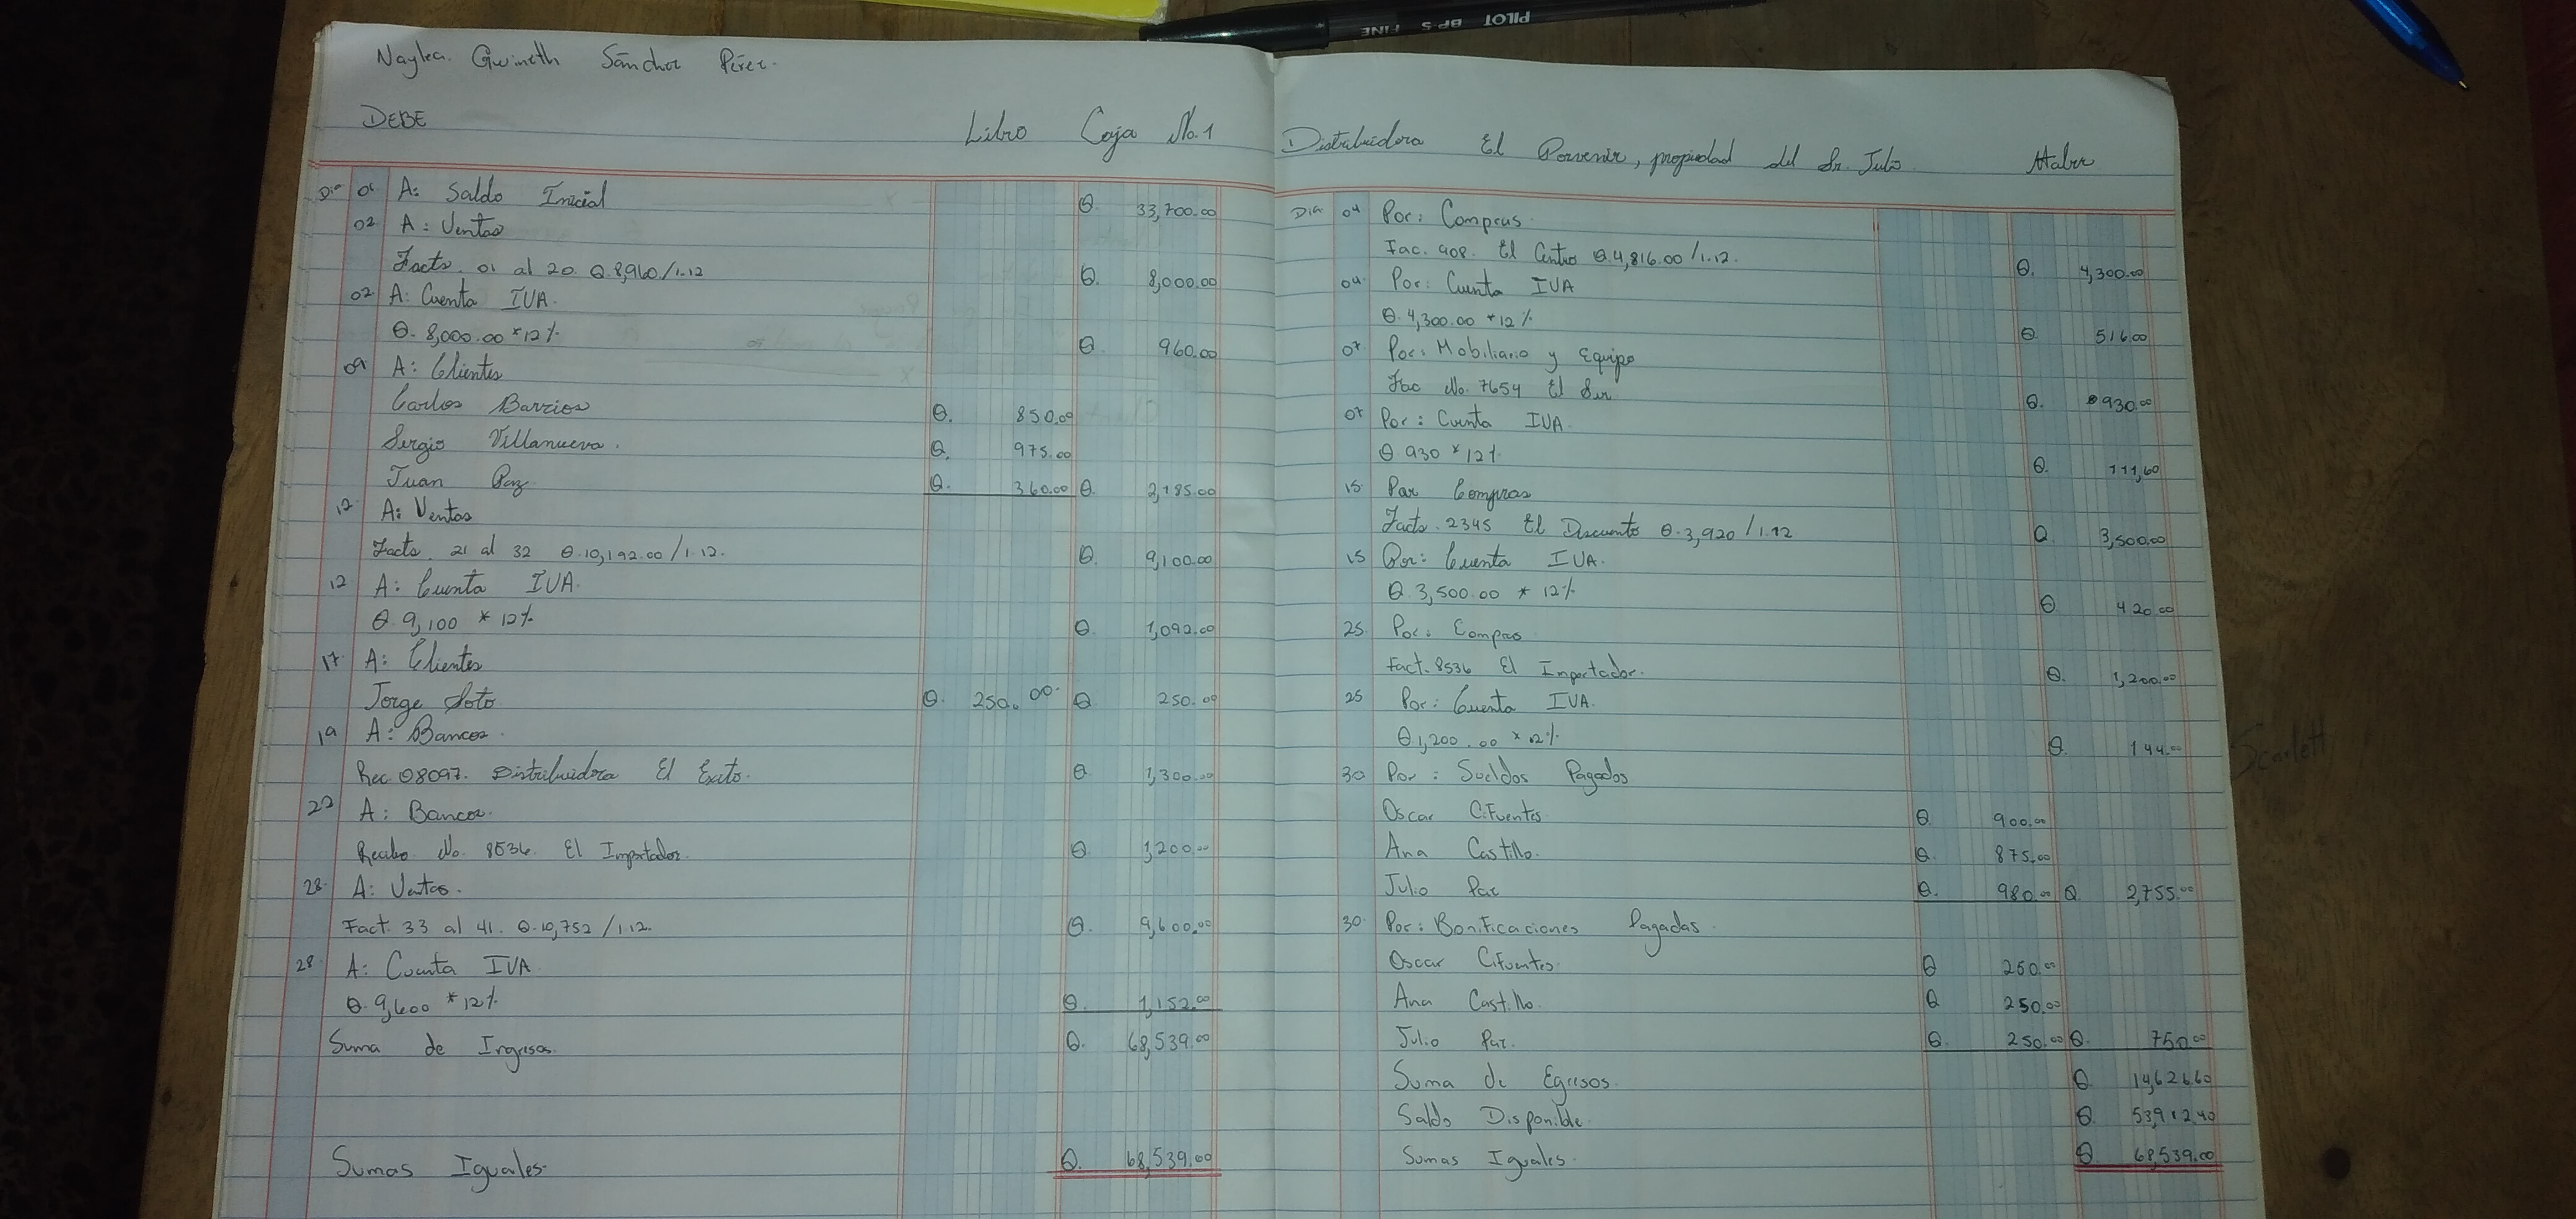 PILOT BPS FINE
Naylea Gwineth Sánchez Pérez.
DEBE
Libro Caja No. 1
Día 01 A: Saldo Inicial Q. 33,700.00
02 A: Ventas
Facts. 01 al 20. Q.8,960/1.12 Q. 8,000.00
02 A: Cuenta IVA.
Q. 8,000.00 *12% Q. 960.00
09 A: Clientes
Carlos Barrios Q. 850.00
Sergio Villanueva. Q. 975.00
Juan Paz Q. 360.00 Q. 2,185.00
12 A: Ventas
Facts. 21 al 32 Q.10,192.00/1.12. Q. 9,100.00
12 A: Cuenta IVA.
Q. 9,100 * 12% Q. 1,092.00
17 A: Clientes
Jorge Soto Q. 250.00 Q. 250.00
19 A: Bancos.
Rec. 08097. Distribuidora El Exito. Q. 1,300.00
22 A: Bancos.
Recibo No. 8536. El Importador. Q. 1,200.00
28. A: Ventas.
Fact. 33 al 41. Q.10,752/1.12. Q. 9,600.00
28. A: Cuenta IVA
Q. 9,600 *12% Q. 1,152.00
Suma de Ingresos. Q. 68,539.00
Sumas Iguales. Q. 68,539.00
Distribuidora El Porvenir, propiedad del Sr. Julo. Haber
Dia 04 Por: Compras.
Fac. 908. El Centro Q.4,816.00/1.12. Q. 4,300.00
04 Por: Cuenta IVA
Q. 4,300.00 *12% Q. 516.00
07 Por: Mobiliario y Equipo
Fac No. 7654 El Sur Q. 930.00
07 Por: Cuenta IVA.
Q 930 *12% Q. 111,60
15 Por Compras
Facts. 2345 El Descuento Q.3,920/1.12 Q. 3,500.00
15 Por: Cuenta IVA.
Q. 3,500.00 * 12% Q 420.00
25. Por: Compras
Fact. 8536 El Importador. Q. 1,200.00
25 Por: Cuenta IVA.
Q1,200.00 *12% Q. 144.00
30 Por: Sueldos Pagados
Oscar Cifuentes Q 900.00
Ana Castillo. Q. 875.00
Julio Par Q. 980.00 Q. 2,755.00
30. Por: Bonificaciones Pagadas.
Oscar Cifuentes. Q 250.00
Ana Castillo. Q 250.00
Julio Par. Q. 250.00 Q. 750.00
Suma de Egresos. Q 14,626.60
Saldo Disponible. Q. 53,912.40
Sumas Iguales. Q. 68,539.00
Scarlett